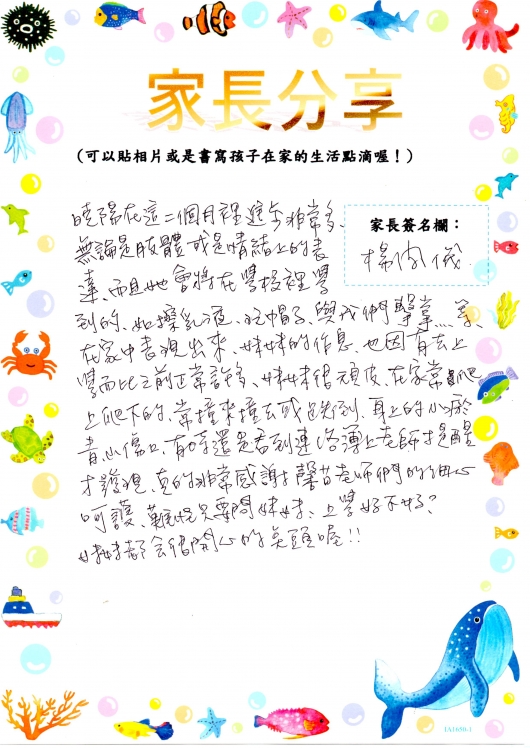 家長分享
(可以貼相片或是書寫孩子在家的生活點滴喔!)
家長簽名欄:
曉陽在這二個月裡進步非常多、
無論是肢體或是情緒上的表
達、而且她會將在學校裡學
到的、如擦乳液、戴帽子、與我們擊掌……等、
在家中表現出來、妹妹的作息、也因有去上
學而比之前正常許多、妹妹很頑皮、在家常爬
上爬下的、常撞來撞去或跌倒、身上的小瘀
青小傷口、有時還是看到連絡簿上老師提醒
才發現、真的非常感謝馨苗老師們的細心
呵護、難怪只要問妹妹、上學好不好?
妹妹都會很開心的點頭喔!!
IA1650-1